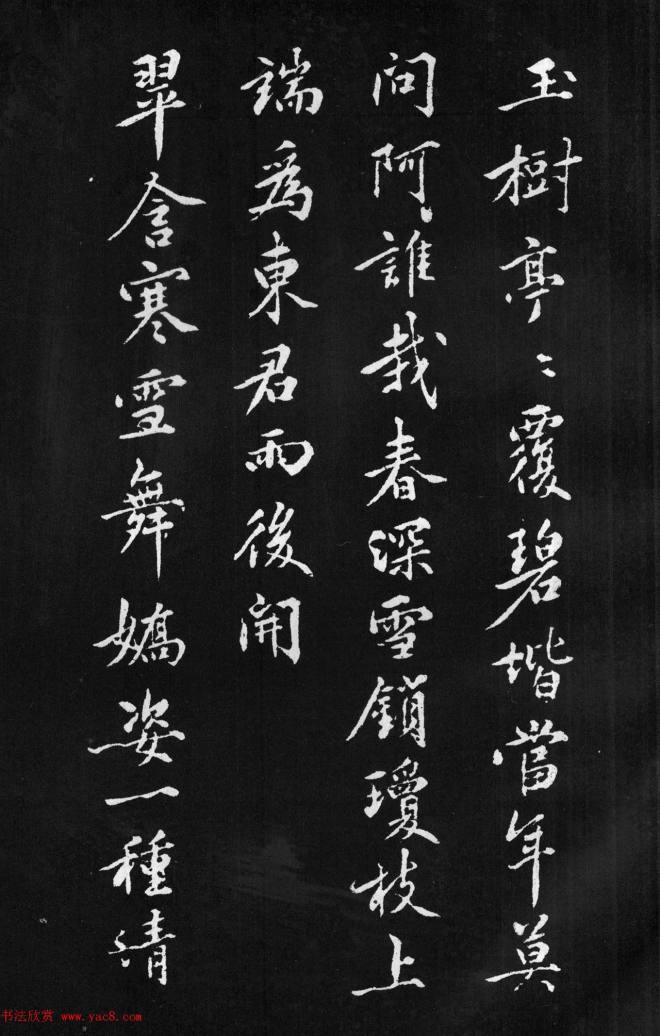 玉樹亭〻覆碧堦當年莫
問阿誰栽春深雪鎖瓊枝上
端爲東君雨後開
翠含寒雪舞嬌姿一種清
书法欣赏 www.yac8.com